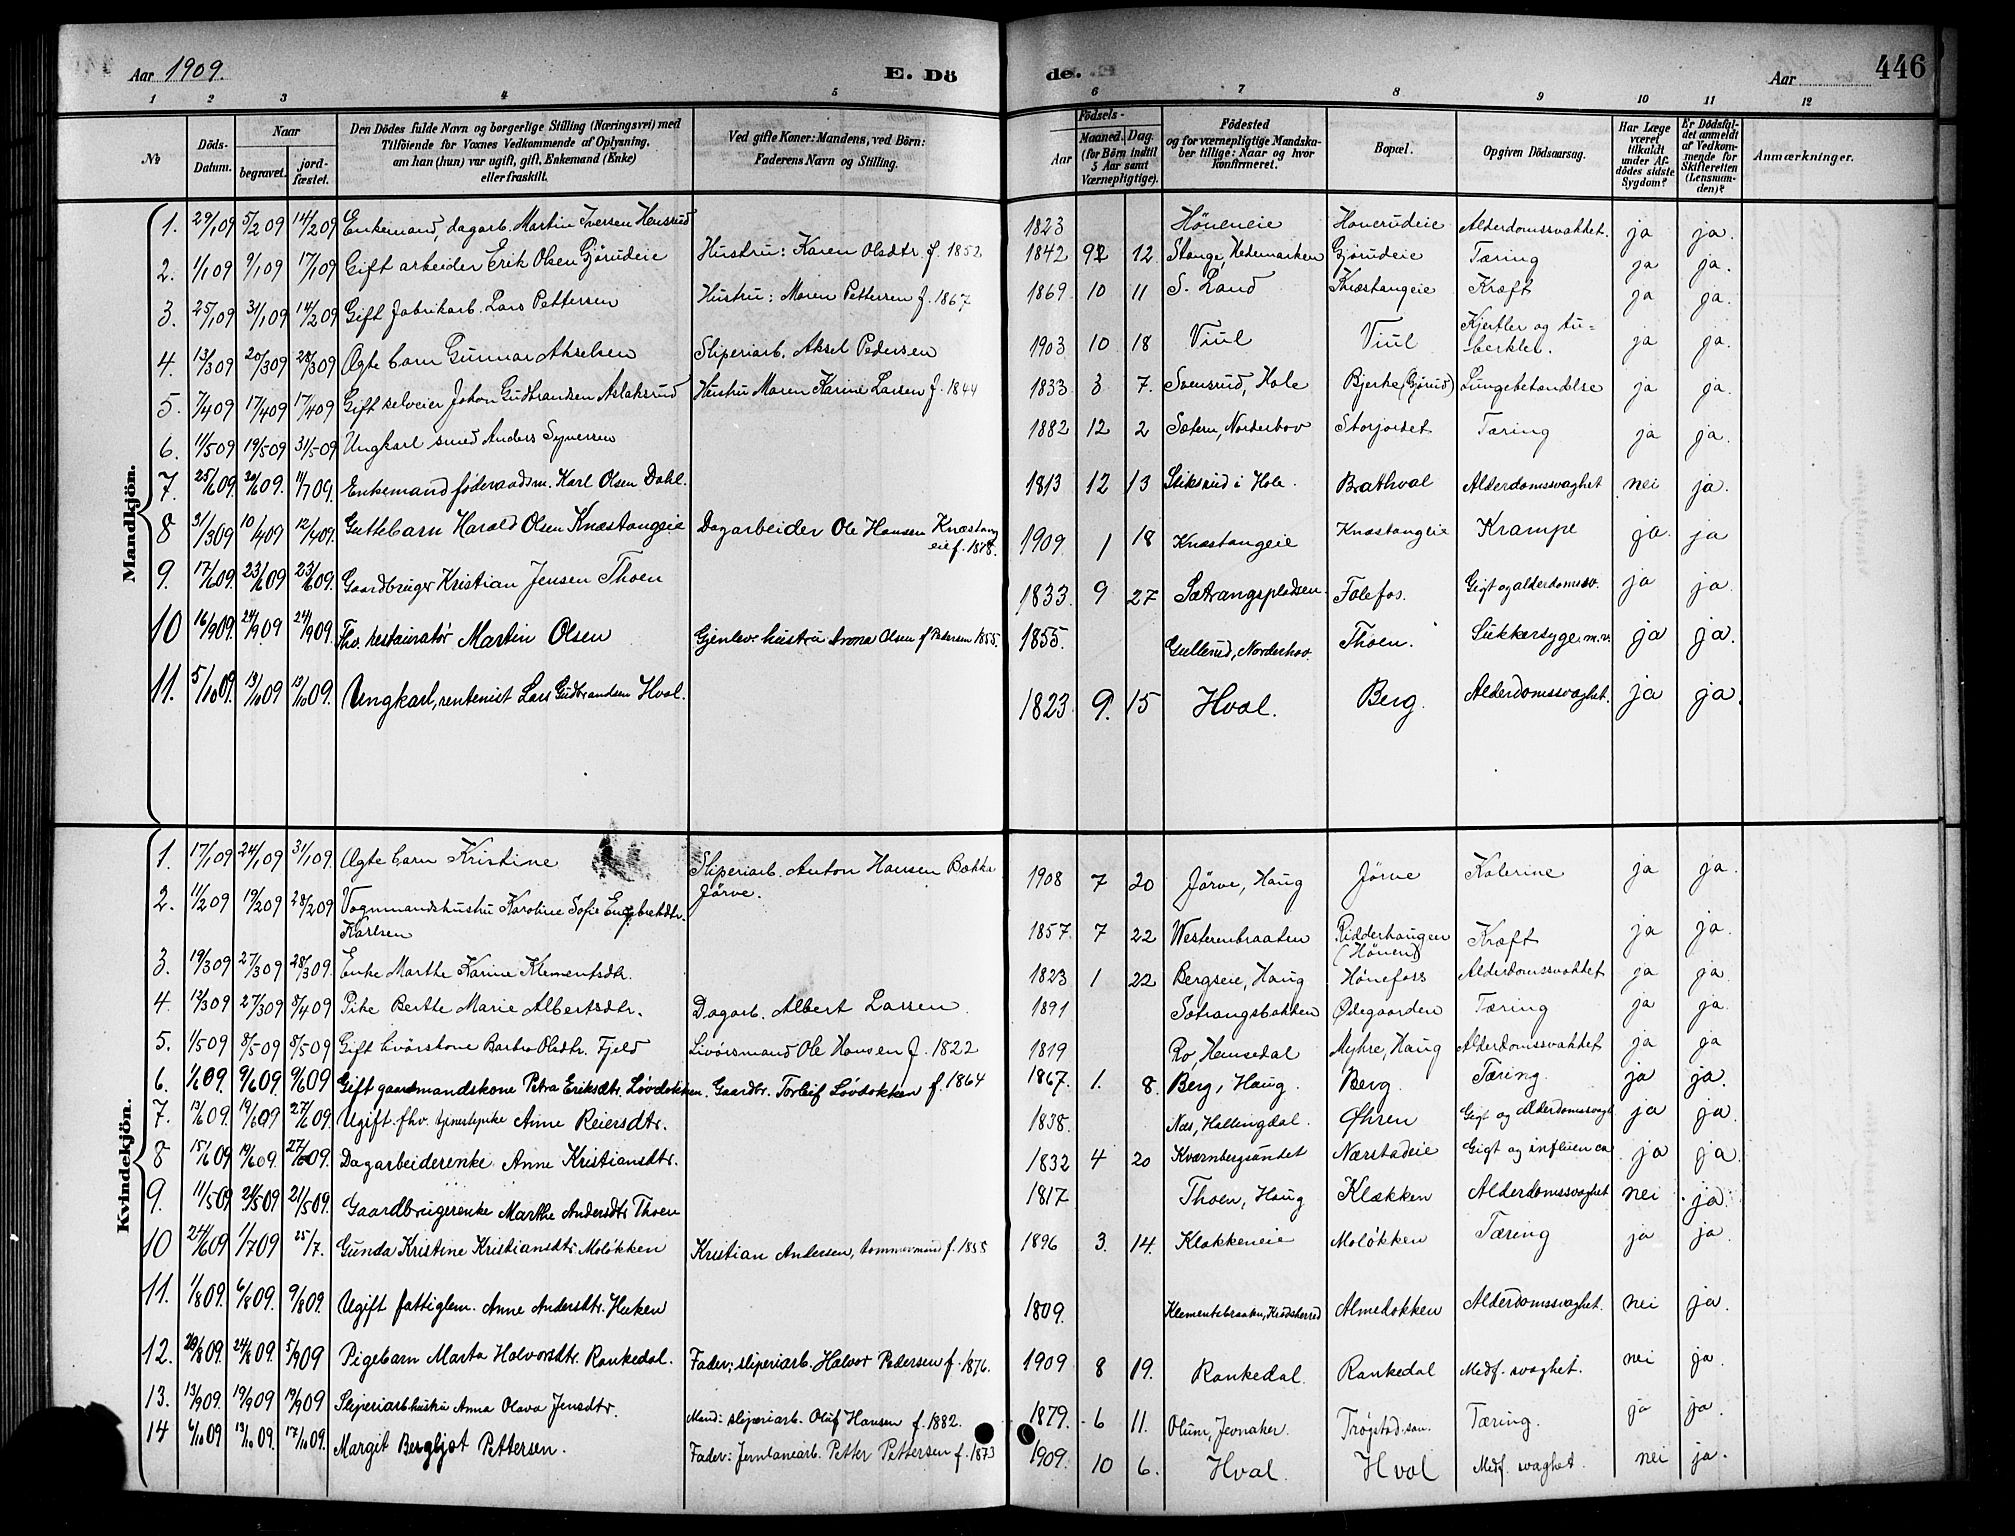 Aar 1909. E. Dö de. Aar 446
1 2 3 4 5 6 7 8 9 10 11 12
No
Döds-Datum.
Naar
begravet.
jord-fæstet.
Den Dödes fulde Navn og borgerlige Stilling (Næringsvei) med
Tilföiende for Voxnes Vedkommende af Oplysning,
om han (hun) var ugift, gift, Enkemand (Enke)
eller fraskilt.
Ved gifte Koner: Mandens, ved Börn:
Faderens Navn og Stilling.
Födsels-
Aar
Maaned. Dag.
(for Börn indtil
5 Aar samt
Værnepligtige).
Födested
og for værnepligtige Mandska-
ber tillige: Naar og hvor
konfirmeret.
Bopæl.
Opgiven Dödsaarsag.
Har Læge
været
tilkaldt
under Af-
dödes sidste
Sygdom?
Er Dödsfal-
det anmeldt
af Vedkom-
mende for
Skifteretten
(Lensman-
den)?
Anmærkninger.
Mandkjön.
1. 29/1 09 5/2 09 14/2 09 Enkemand, dagarb. Martin Iversen Hensrud 1823 Höneneie Honerudeie Alderdomssvakhet. ja ja.
2. 1/1 09 9/1 09 17/1 09 Gift arbeider Erik Olsen Gjörudeie Hustru: Karen Olsdtr. f. 1852 1842 12 Stange, Hedemarken Gjörudeie Tæring ja ja.
3. 25/1 09 31/1 09 14/2 09 Gift fabrikarb. Lars Pettersen Hustru: Maren Pettersen f. 1867 1869 10 11 S. Land Knæstangeie Kræft ja ja.
4. 13/3 09 20/3 09 28/3 09 Ægte barn Gunnar Akselsen Sliperiarb. Aksel Pedersen 1903 10 18 Viul Viul Kjertler og tu=
berkler. ja ja.
5. 7/4 09 17/4 09 17/4 09 Gift selveier Johan Gudbrandsen Aslaksrud Hustru Maren Karine Larsen f. 1844 1833 3 7. Svensrud, Hole Bjerke (Gjörud) Lungebetændelse ja ja.
6. 11/5 09 19/5 09 31/5 09 Ungkarl smed Anders Syversen 1882 12 2 Sætern, Norderhov Storjordet Tæring ja ja.
7. 25/6 09. 09. 11/7 09. Enkemand föderaadsm. Karl Olsen Dahl. 1813 12 13 Stiksrud i Hole. Brathval Alderdomssvaghet nei ja.
8 31/3 09 10/4 09 12/4 09. Guttebarn Harald Olsen Knæstangeie Dagarbeider Ole Hansen Knæstang
eie f. 1878. 1909. 1 18 Knæstangeie Knæstangeie Krampe ja. ja
9. 17/6 09. 23/6 09 23/6 09. Gaardbruger Kristian Jensen Thoen 1833. 9 27 Sætrangspladsen. Folefos. Gigt og alderdomssv. ja ja.
10 16/9 09. 24/9 09 24/9 09. Fhv. restauratør Martin Olsen Gjenlev. hustru Anne Olsen f Petersen 1855. 1855. Gullerud, Norderhov. Thoen. Sukkersyge m.v. ja ja.
11. 5/10 09. 13/10 09 13/10 09. Ungkarl, rentenist Lars Gudbrandsen Hval. 1823 9. 15 Hval. Berg. Alderdomssvaghet. ja ja.
Kvindekjön.
1. 17/1 09 24/1 09 31/1 09. Ægte barn Kristine Sliperiarb. Anton Hansen Bakke
Jörve. 1908 7 20 Jörve, Haug Jörve Kolerine ja ja.
2. 11/2 09 19/2 09 28/2 09 Vognmandshustru Karoline Sofie Engebretsdtr.
Karlsen 1857. 7 22 Westerenbraaten Ridderhaugen
(Hönen) Kræft ja ja.
3. 19/3 09 27/3 09 28/3 09. Enke Marthe Karine Klementsdtr. 1823 1 22 Bergseie, Haug Hönefoss Alderdomssvakhet ja ja
4. 12/3 09 27/3 09 8/4 09 Pike Berthe Marie Albertsdtr. Dagarb. Albert Larsen 1891 Sætrangsbakken Ødegaarden Tæring ja ja.
5. 1/5 09 8/5 09 8/5 09 Gift livörskone Barbro Olsdtr. Fjeld Livörsmand Ole Hansen f. 1822 1819 Ro, Hemsedal Myhre, Haug Alderdomssvakhet ja ja
6. 1/6 09. 9/6 09 9/6 09 Gift gaardmandskone Petra Eriksdtr. Lövdokken. Gaardbr. Torleif Lövdokken f. 1864 1867. 1. 8. Berg, Haug. Berg. Tæring. ja ja.
7. 12/6 09. 19/6 09 27/6 09. Ugift fhv. tjenestepike Anne Reiersdtr. 1838. Næs, Hallingdal. Øhren Gigt og Alderdomssvagh. ja ja.
8 15/6 09 19/6 09. 27/6 09. Dagarbeiderenke Anne Kristiansdtr. 1832 4 20 Kværnbergsundet Nærstadeie Gigt og influenca ja ja.
9. 11/5 09 21/5 09 21/5 09. Gaardbrugerenke Marthe Andersdtr Thoen 1817 Thoen, Haug Klækken Alderdomssvaghet nei ja.
10 24/6 09 1/7 09 25/7. Gunda Kristine Kristiansdtr Moløkken Kristian Andersen, tommermand f. 1855 1896 3. 14. Klækkeneie Moløkken Tæring ja ja.
11. 1/8 09. 6/8 09. 9/8 09. Ugift fattiglem. Anne Andersdtr. Haken 1809. Klementsbraaten, Krødsherred Almedokken Alderdomssvaghet. nei ja.
12. 20/8 09. 24/8 09. 5/9 09 Pigebarn Marta Halvorsdtr. Rankedal. Fader: sliperiarb. Halvor Pedersen f. 1876. 1909 8 19. Rankedal. Rankedal Medf. svaghet. nei ja.
13. 13/9 09. 19/9 09 19/9 09 Sliperiarb hustru Anna Olava Jensdtr. Mand: sliperiarb. Oluf Hansen f. 1882. 1879. 6 11. Olum, Jevnaker. Trøgstad san. Tæring. ja ja.
14 6/10 09 13/10 09. 17/10 09. Margit Bergljot Pettersen. Fader: Jernbanearb. Petter Pettersen f. 1873 1909. 10 6. Hval. Hval Medf. svaghet. nei ja.